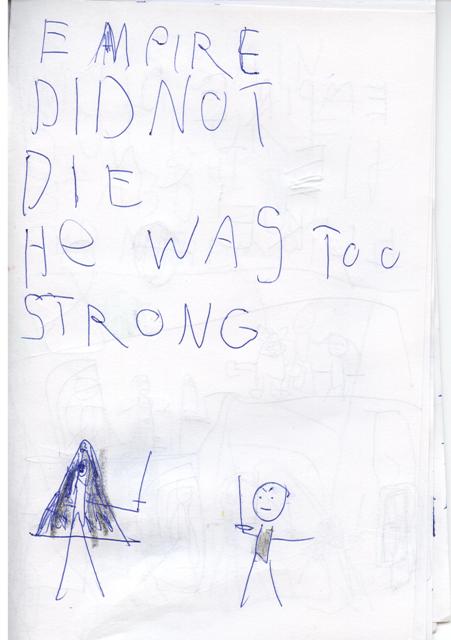 EMPIRE
DID NOT
DIE
He WAS Too
STRONG